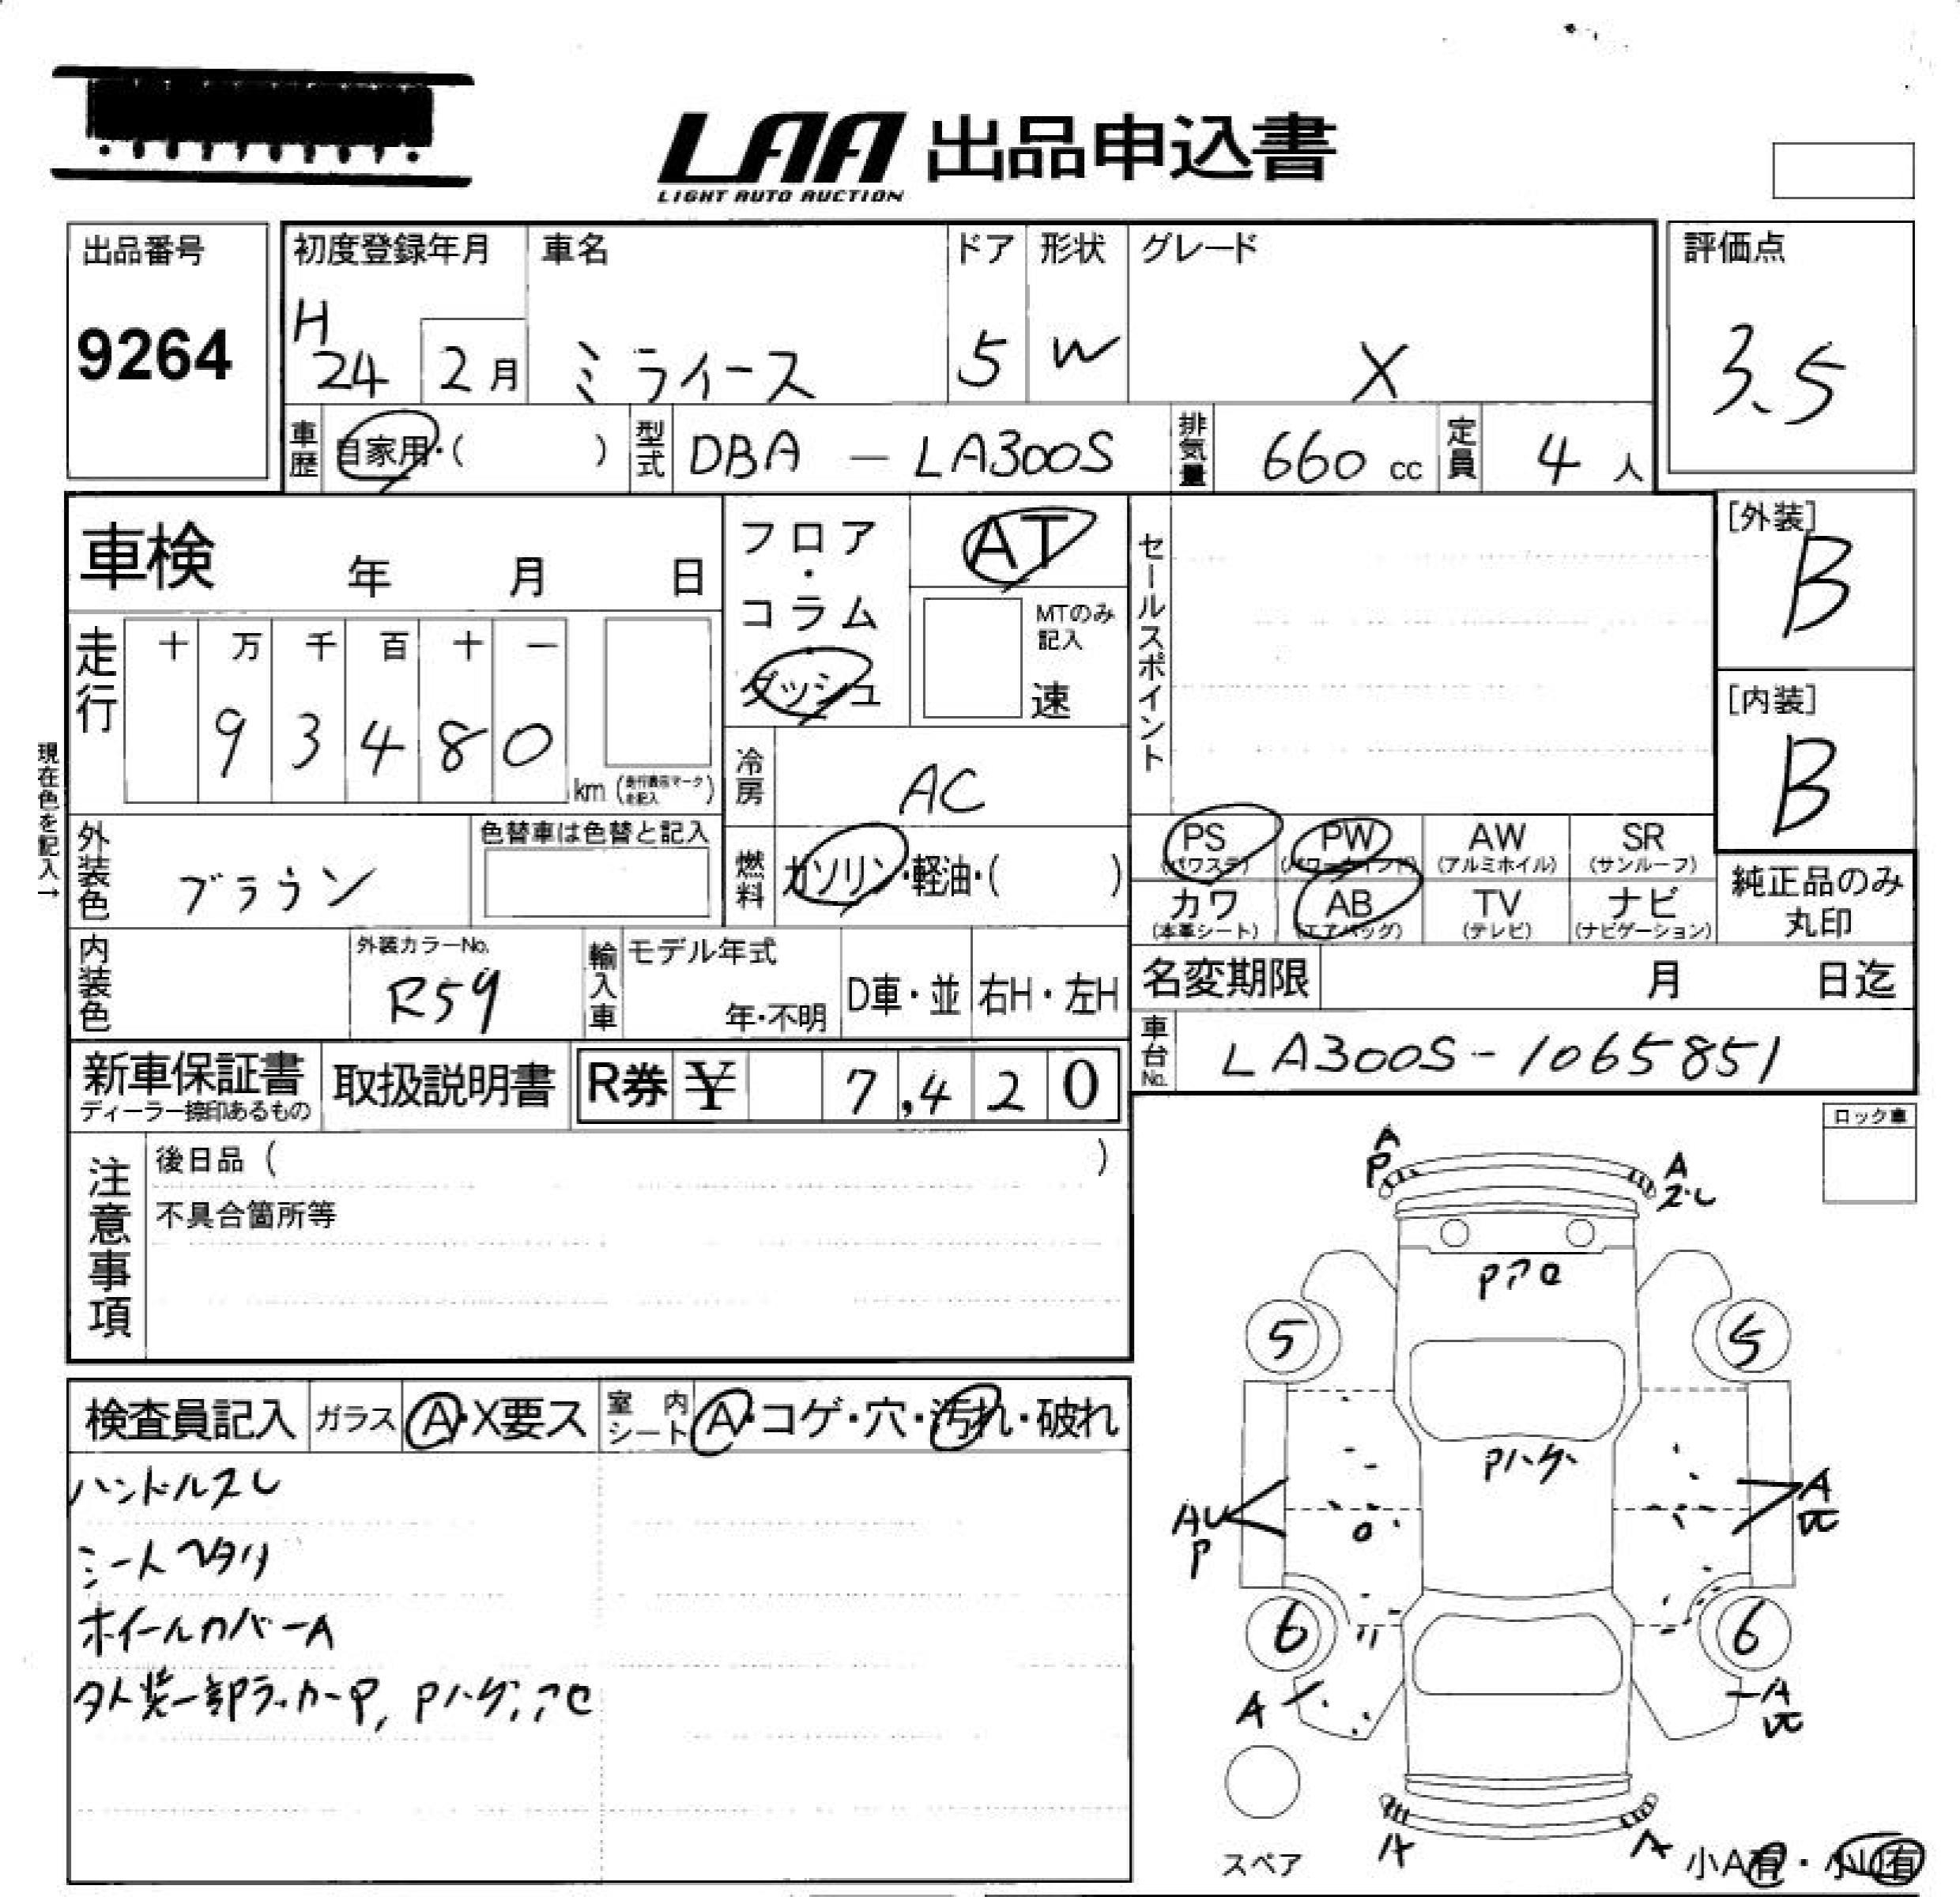 LAA 出品申込書
LIGHT AUTO AUCTION
出品番号
9264
初度登録年月
H
24 2月
車名
ミライース
ドア
5
形状
W
グレード
X
評価点
3.5
車歴 自家用・( )
型式 DBA - LA300S
排気量 660 cc
定員 4 人
車検 年 月 日
フロア・コラム・ダッシュ
AT
MTのみ記入
速
セールスポイント
[外装]
B
[内装]
B
走行
十 万 千 百 十 一
9 3 4 8 0
km
現在色を記入→
冷房 AC
外装色 ブラウン
色替車は色替と記入
燃料 ガソリン・軽油・( )
PS (パワステ)
PW (パワーウインド)
AW (アルミホイル)
SR (サンルーフ)
カワ (本革シート)
AB (エアバッグ)
TV (テレビ)
ナビ (ナビゲーション)
純正品のみ丸印
内装色
外装カラーNo.
R59
輸入車
モデル年式
年・不明
D車・並
右H・左H
名変期限 月 日迄
車台No. LA300S-1065851
新車保証書
ディーラー捺印あるもの
取扱説明書
R券 ¥ 7,420
注意事項
後日品 ( )
不具合箇所等
ロック車
A
P
A
スレ
Pアセ
5
5
Pハゲ
AU
P
A
6
6
A
A
A
A
スペア
小A有・小U有
検査員記入
ガラス A・X要ス
室内シート A・コゲ・穴・汚れ・破れ
ハンドルスレ
シートヘタリ
ホイールカバーA
外装一部ラッカーP, Pハゲ,アセ